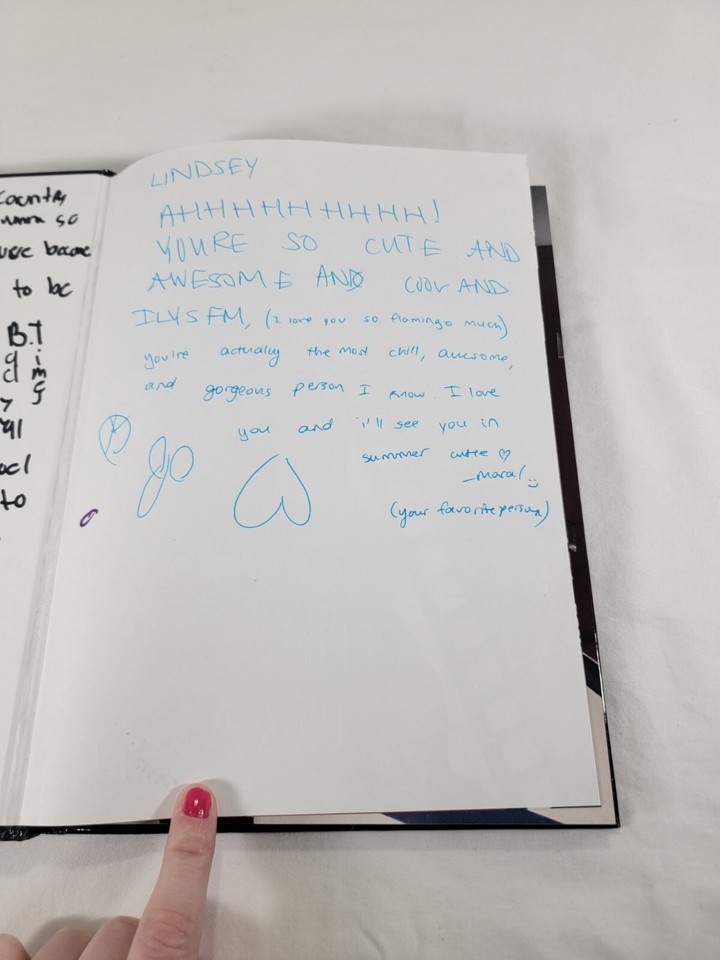 Country
so
were became
to be
B.T
to
LINDSEY
AHHHHHH HHHH!
YOURE SO CUTE AND
AWESOME AND COOL AND
ILYSFM, (I love you so flamingo much)
you're actually the most chill, awesome,
and gorgeous person I know. I love
you and i'll see you in
summer cutie ♡
—maral
(your favorite person)